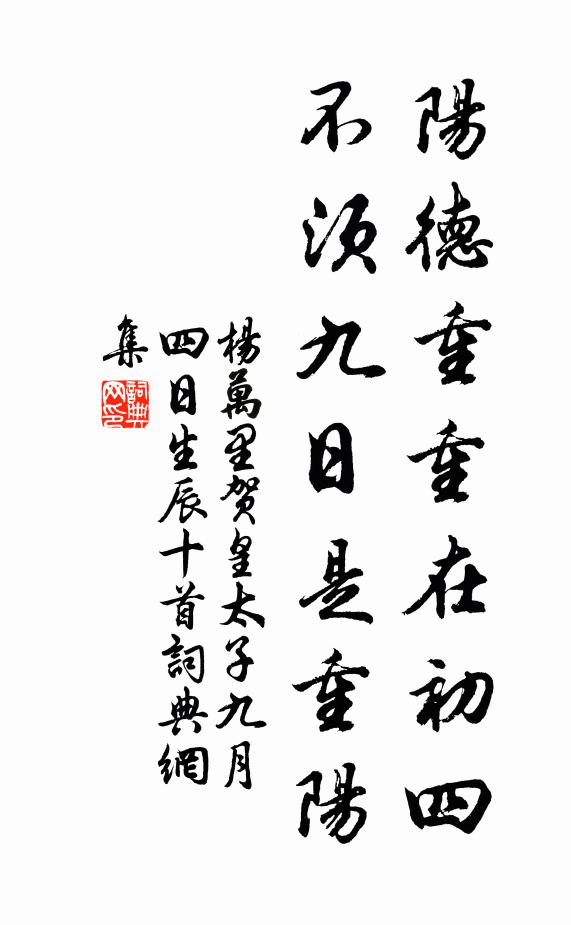 陽德重重在初四
不須九日是重陽
楊萬里賀皇太子九月
四日生辰十首詞典網
集
詞典
网印